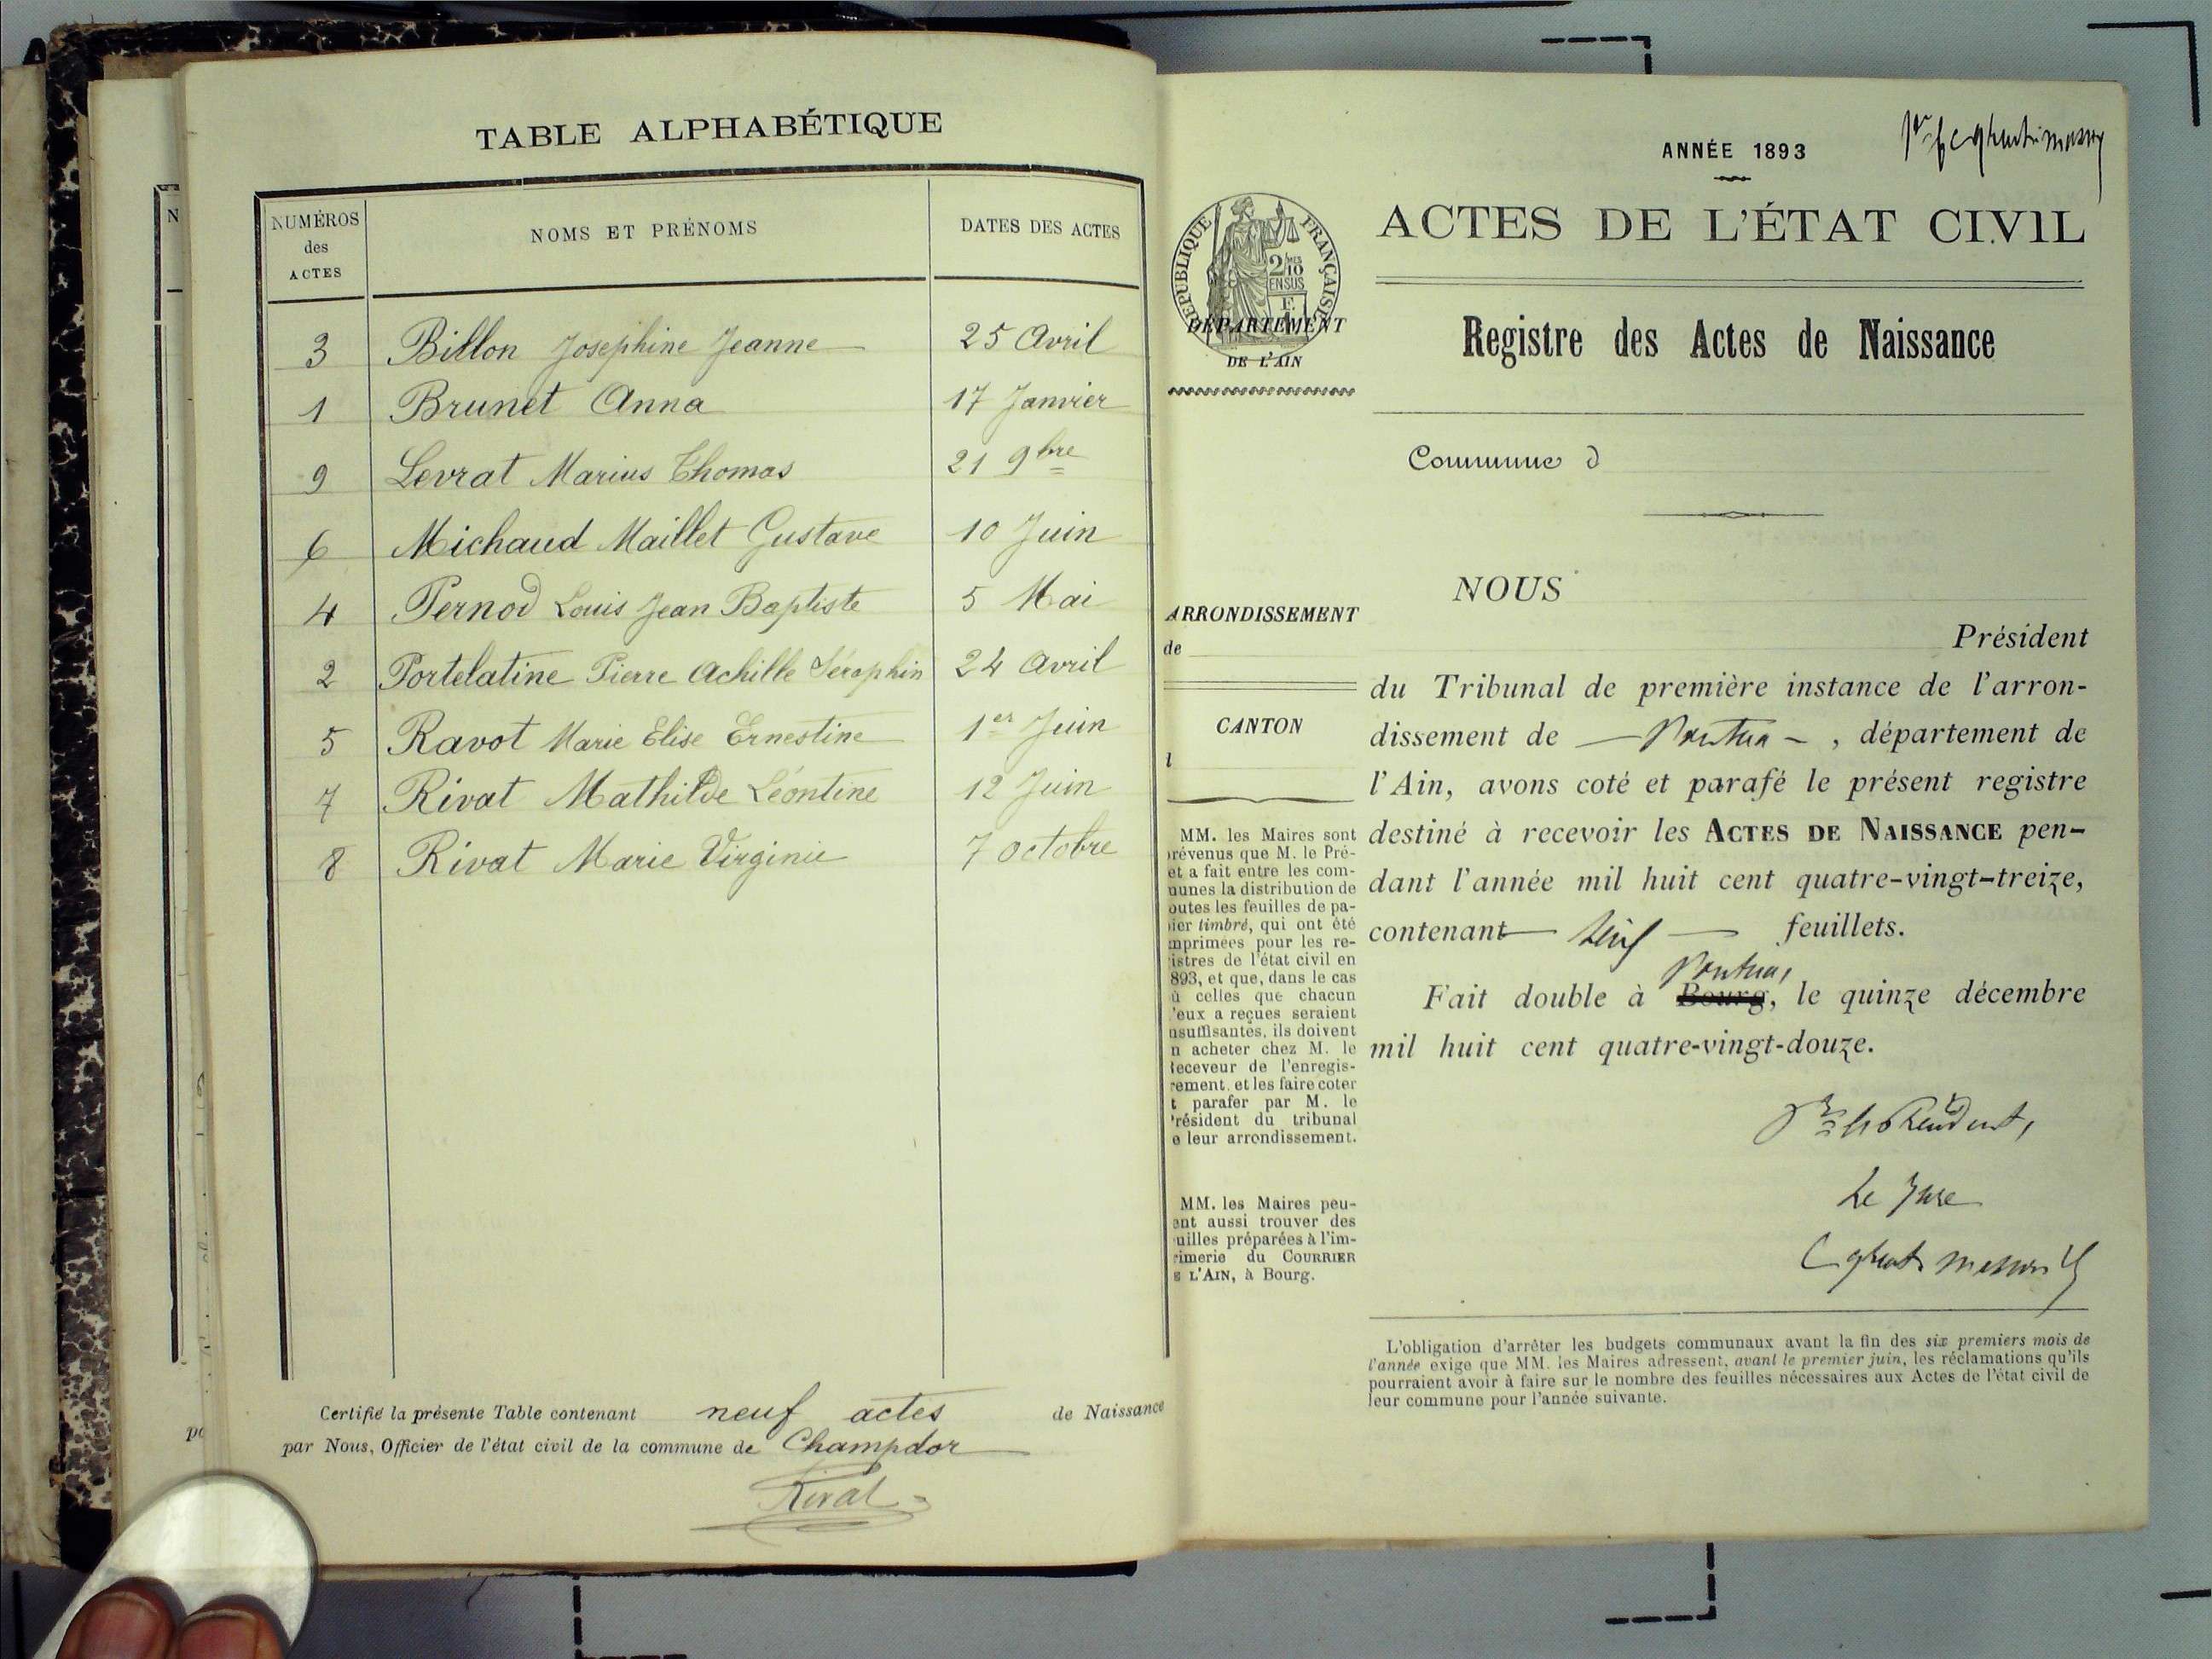 TABLE ALPHABÉTIQUE
NUMÉROS
des
ACTES
NOMS ET PRÉNOMS
DATES DES ACTES
3 Billon Josephine Jeanne 25 Avril
1 Brunet Anna 17 Janvier
9 Levrat Marius Thomas 21 9bre
6 Michaud Maillet Gustave 10 Juin
4 Pernod Louis Jean Baptiste 5 Mai
2 Portelatine Pierre Achille Séraphin 24 Avril
5 Ravot Marie Elise Ernestine 1er Juin
7 Rivat Mathilde Léontine 12 Juin
8 Rivat Marie Virginie 7 Octobre
Certifié la présente Table contenant neuf actes de Naissance
par Nous, Officier de l'état civil de la commune de Champdor
Rivat
ANNÉE 1893
ACTES DE L'ÉTAT CIVIL
RÉPUBLIQUE FRANÇAISE
2/10
EN SUS
DÉPARTEMENT
DE L'AIN
Registre des Actes de Naissance
Commune d
NOUS
Président
du Tribunal de première instance de l'arron-
dissement de — Nantua — , département de
l'Ain, avons coté et parafé le présent registre
destiné à recevoir les ACTES DE NAISSANCE pen-
dant l'année mil huit cent quatre-vingt-treize,
contenant — — feuillets.
Nantua,
Fait double à Bourg, le quinze décembre
mil huit cent quatre-vingt-douze.
Le Juge
ARRONDISSEMENT
de
CANTON
MM. les Maires sont
révenus que M. le Pré-
et a fait entre les com-
munes la distribution de
outes les feuilles de pa-
ier timbré, qui ont été
mprimées pour les re-
istres de l'état civil en
893, et que, dans le cas
ù celles que chacun
'eux a reçues seraient
nsuffisantes, ils doivent
n acheter chez M. le
eceveur de l'enregis-
rement, et les faire coter
t parafer par M. le
résident du tribunal
e leur arrondissement.
MM. les Maires peu-
ent aussi trouver des
uilles préparées à l'im-
rimerie du COURRIER
E L'AIN, à Bourg.
L'obligation d'arrêter les budgets communaux avant la fin des six premiers mois de
l'année exige que MM. les Maires adressent, avant le premier juin, les réclamations qu'ils
pourraient avoir à faire sur le nombre des feuilles nécessaires aux Actes de l'état civil de
leur commune pour l'année suivante.